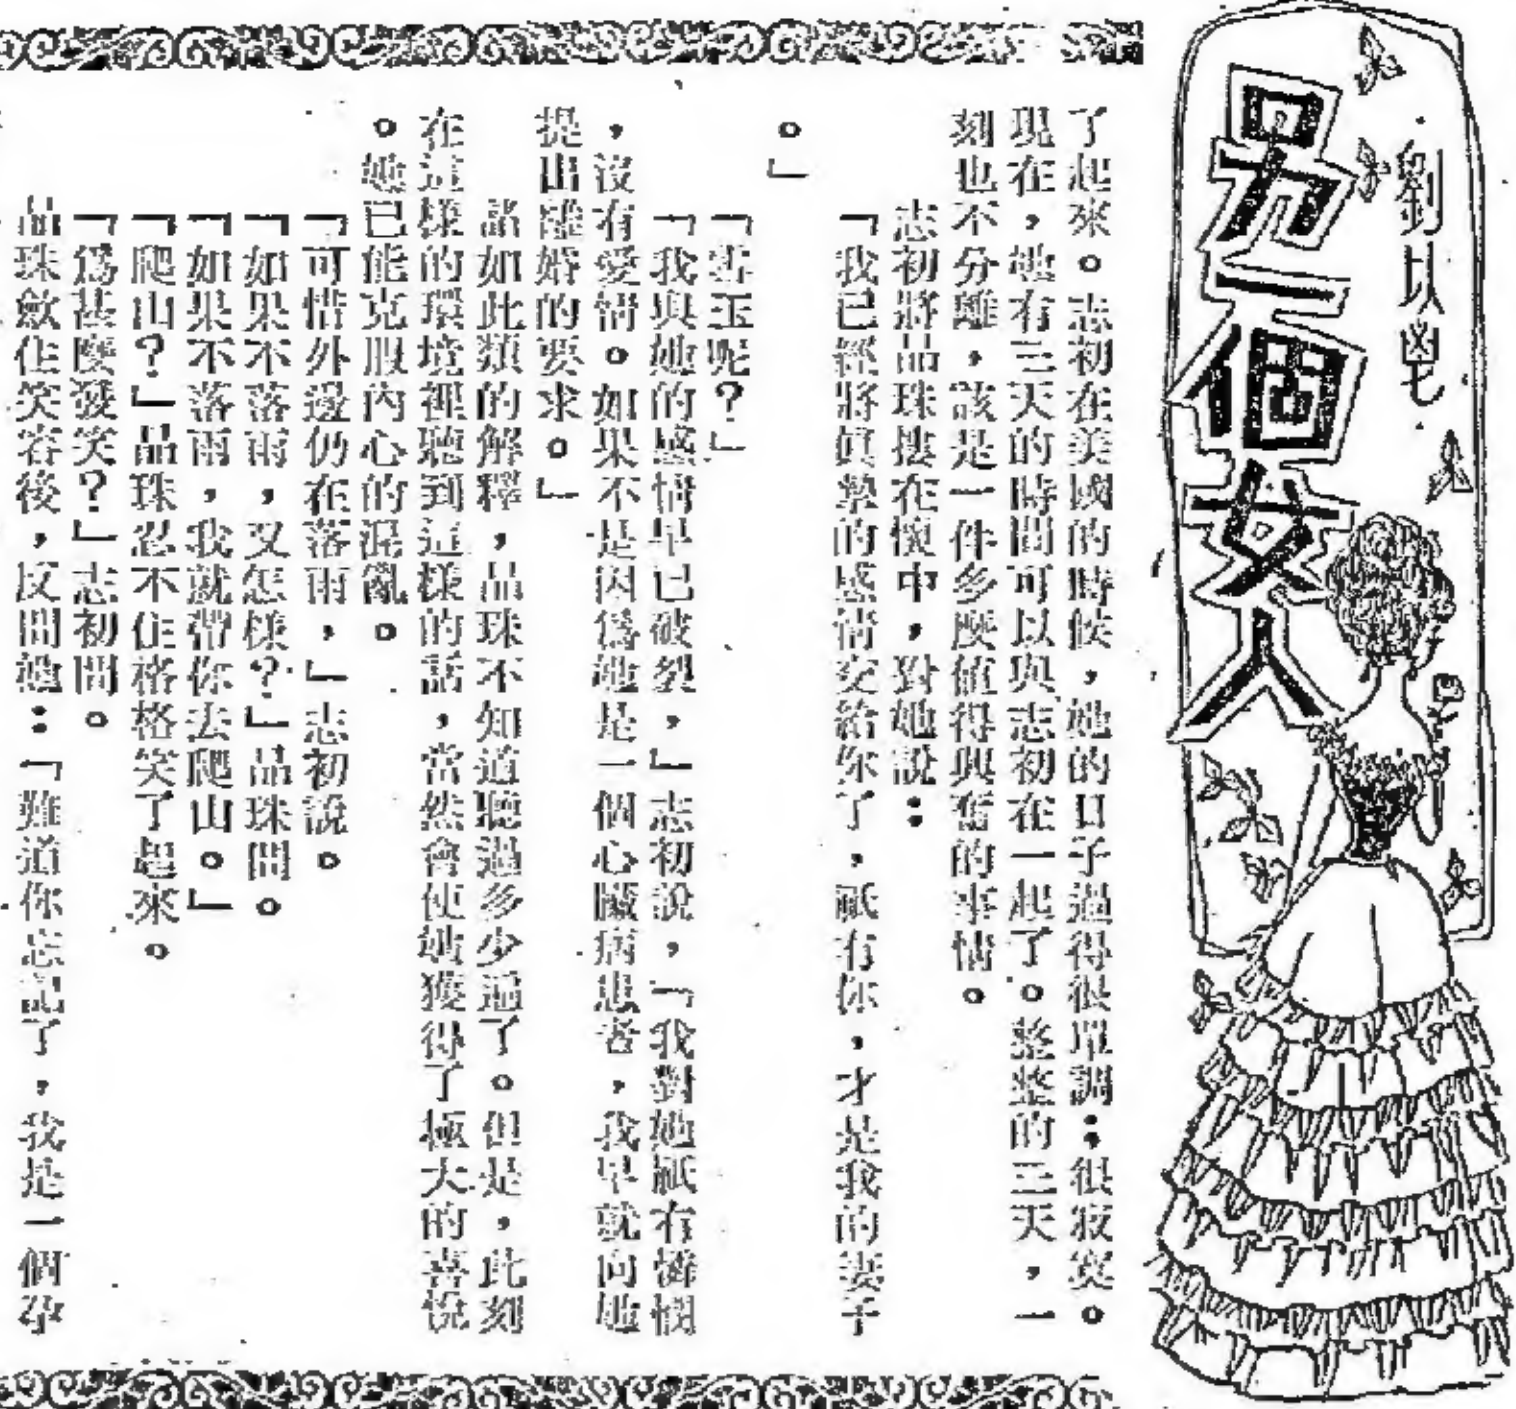 另一個女人
劉以鬯
了起來。志初在美國的時候，她的日子過得很單調；很寂寞。
現在，她有三天的時間可以與志初在一起了。整整的三天，一
刻也不分離，該是一件多麼值得興奮的事情。
志初將品珠摟在懷中，對她說：
「我已經將眞摯的感情交給你了，祇有你，才是我的妻子
。」
「雪玉呢？」
「我與她的感情早已破裂，」志初說，「我對她祇有憐憫
，沒有愛情。如果不是因爲她是一個心臟病患者，我早就向她
提出離婚的要求。」
諸如此類的解釋，品珠不知道聽過多少遍了。但是，此刻
在這樣的環境裡聽到這樣的話，當然會使她獲得了極大的喜悅
。她已能克服內心的混亂。
「可惜外邊仍在落雨，」志初說。
「如果不落雨，又怎樣？」品珠問。
「如果不落雨，我就帶你去爬山。」
「爬山？」品珠忍不住格格笑了起來。
「爲甚麼發笑？」志初問。
品珠斂住笑容後，反問她：「難道你忘記了，我是一個孕